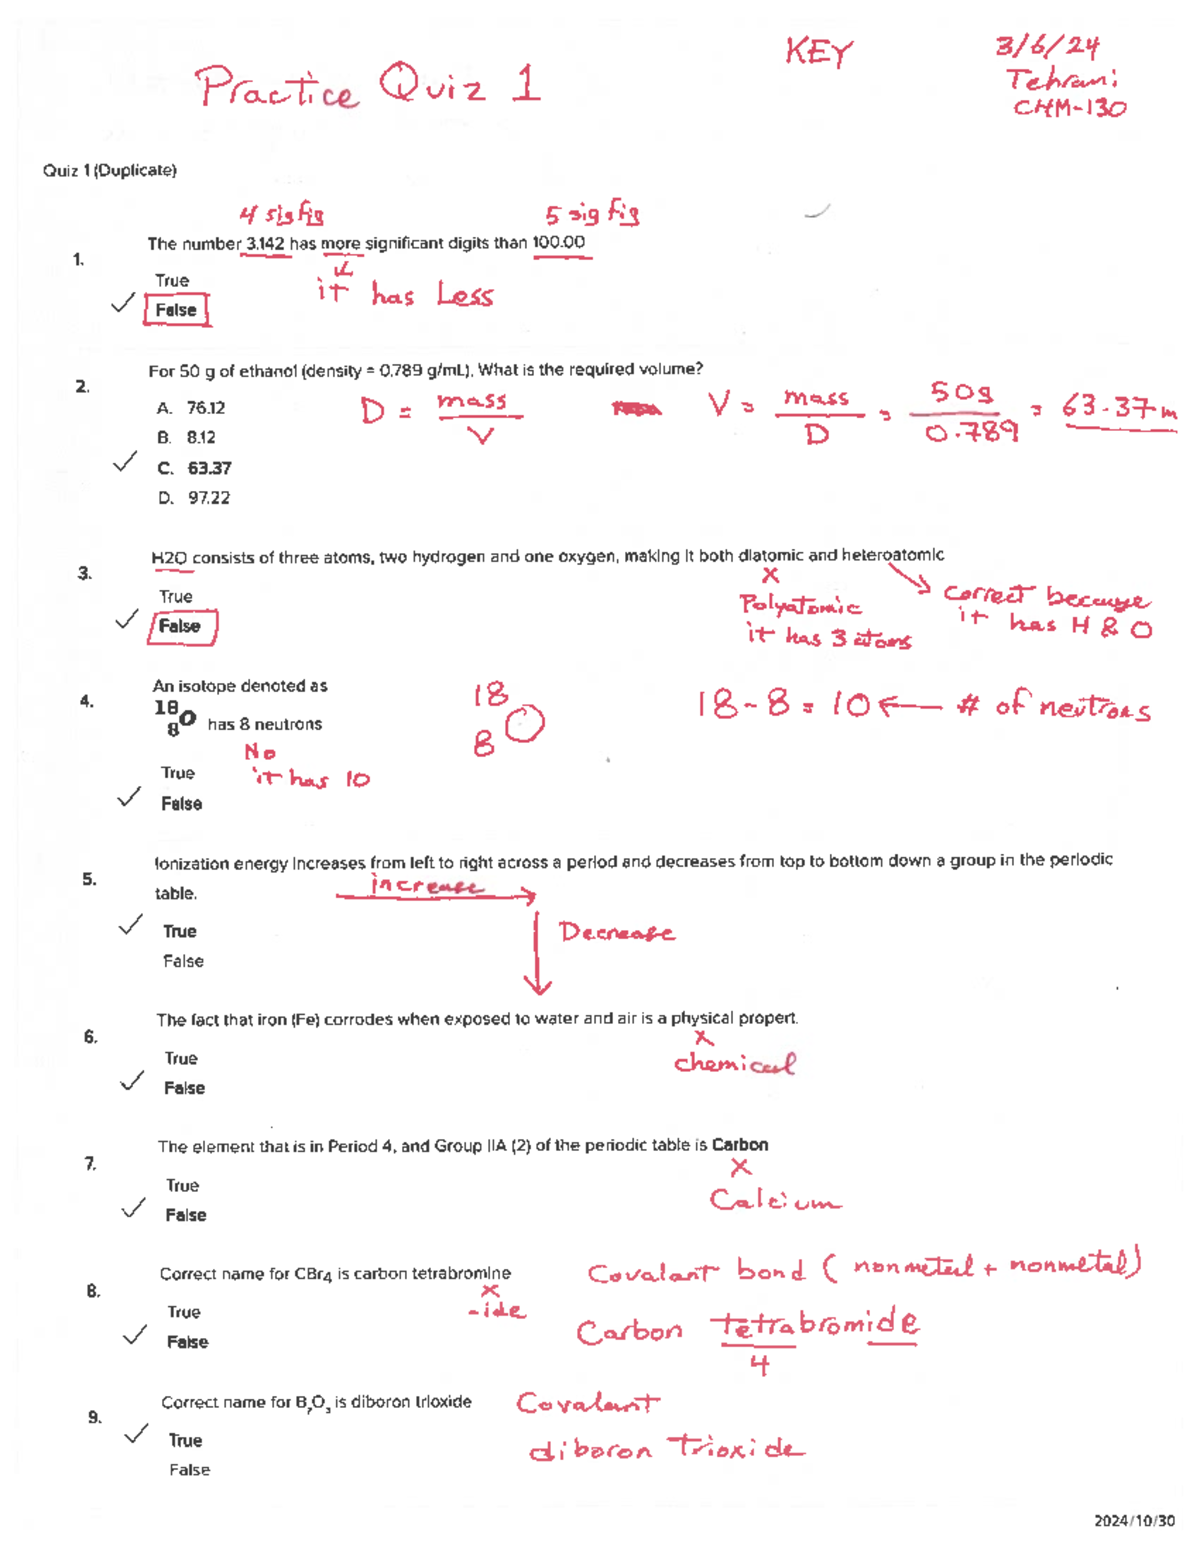 KEY
3/6/24
Practice Quiz 1
Tehrani
CHM-130
Quiz 1 (Duplicate)
4 sig fig
5 sig fig
1.
The number 3.142 has more significant digits than 100.00
True
it has Less
False
2.
For 50 g of ethanol (density = 0.789 g/mL), What is the required volume?
A. 76.12
B. 8.12
C. 63.37
D. 97.22
D = mass / V
V = mass / D = 50g / 0.789 = 63.37 m
3.
H2O consists of three atoms, two hydrogen and one oxygen, making it both diatomic and heteroatomic
True
False
x
Polyatomic
it has 3 atoms
correct because
it has H & O
4.
An isotope denoted as
18
8 O has 8 neutrons
No
it has 10
True
False
18
8 O
18 - 8 = 10 ← # of neutrons
5.
Ionization energy increases from left to right across a period and decreases from top to bottom down a group in the periodic
table.
increase
True
Decrease
False
6.
The fact that iron (Fe) corrodes when exposed to water and air is a physical propert.
x
True
chemical
False
7.
The element that is in Period 4, and Group IIA (2) of the periodic table is Carbon
x
True
Calcium
False
8.
Correct name for CBr4 is carbon tetrabromine
x
-ide
Covalant bond (nonmetal + nonmetal)
True
Carbon tetrabromide
4
False
9.
Correct name for B2O3 is diboron trioxide
Covalant
True
diboron trioxide
False
2024/10/30